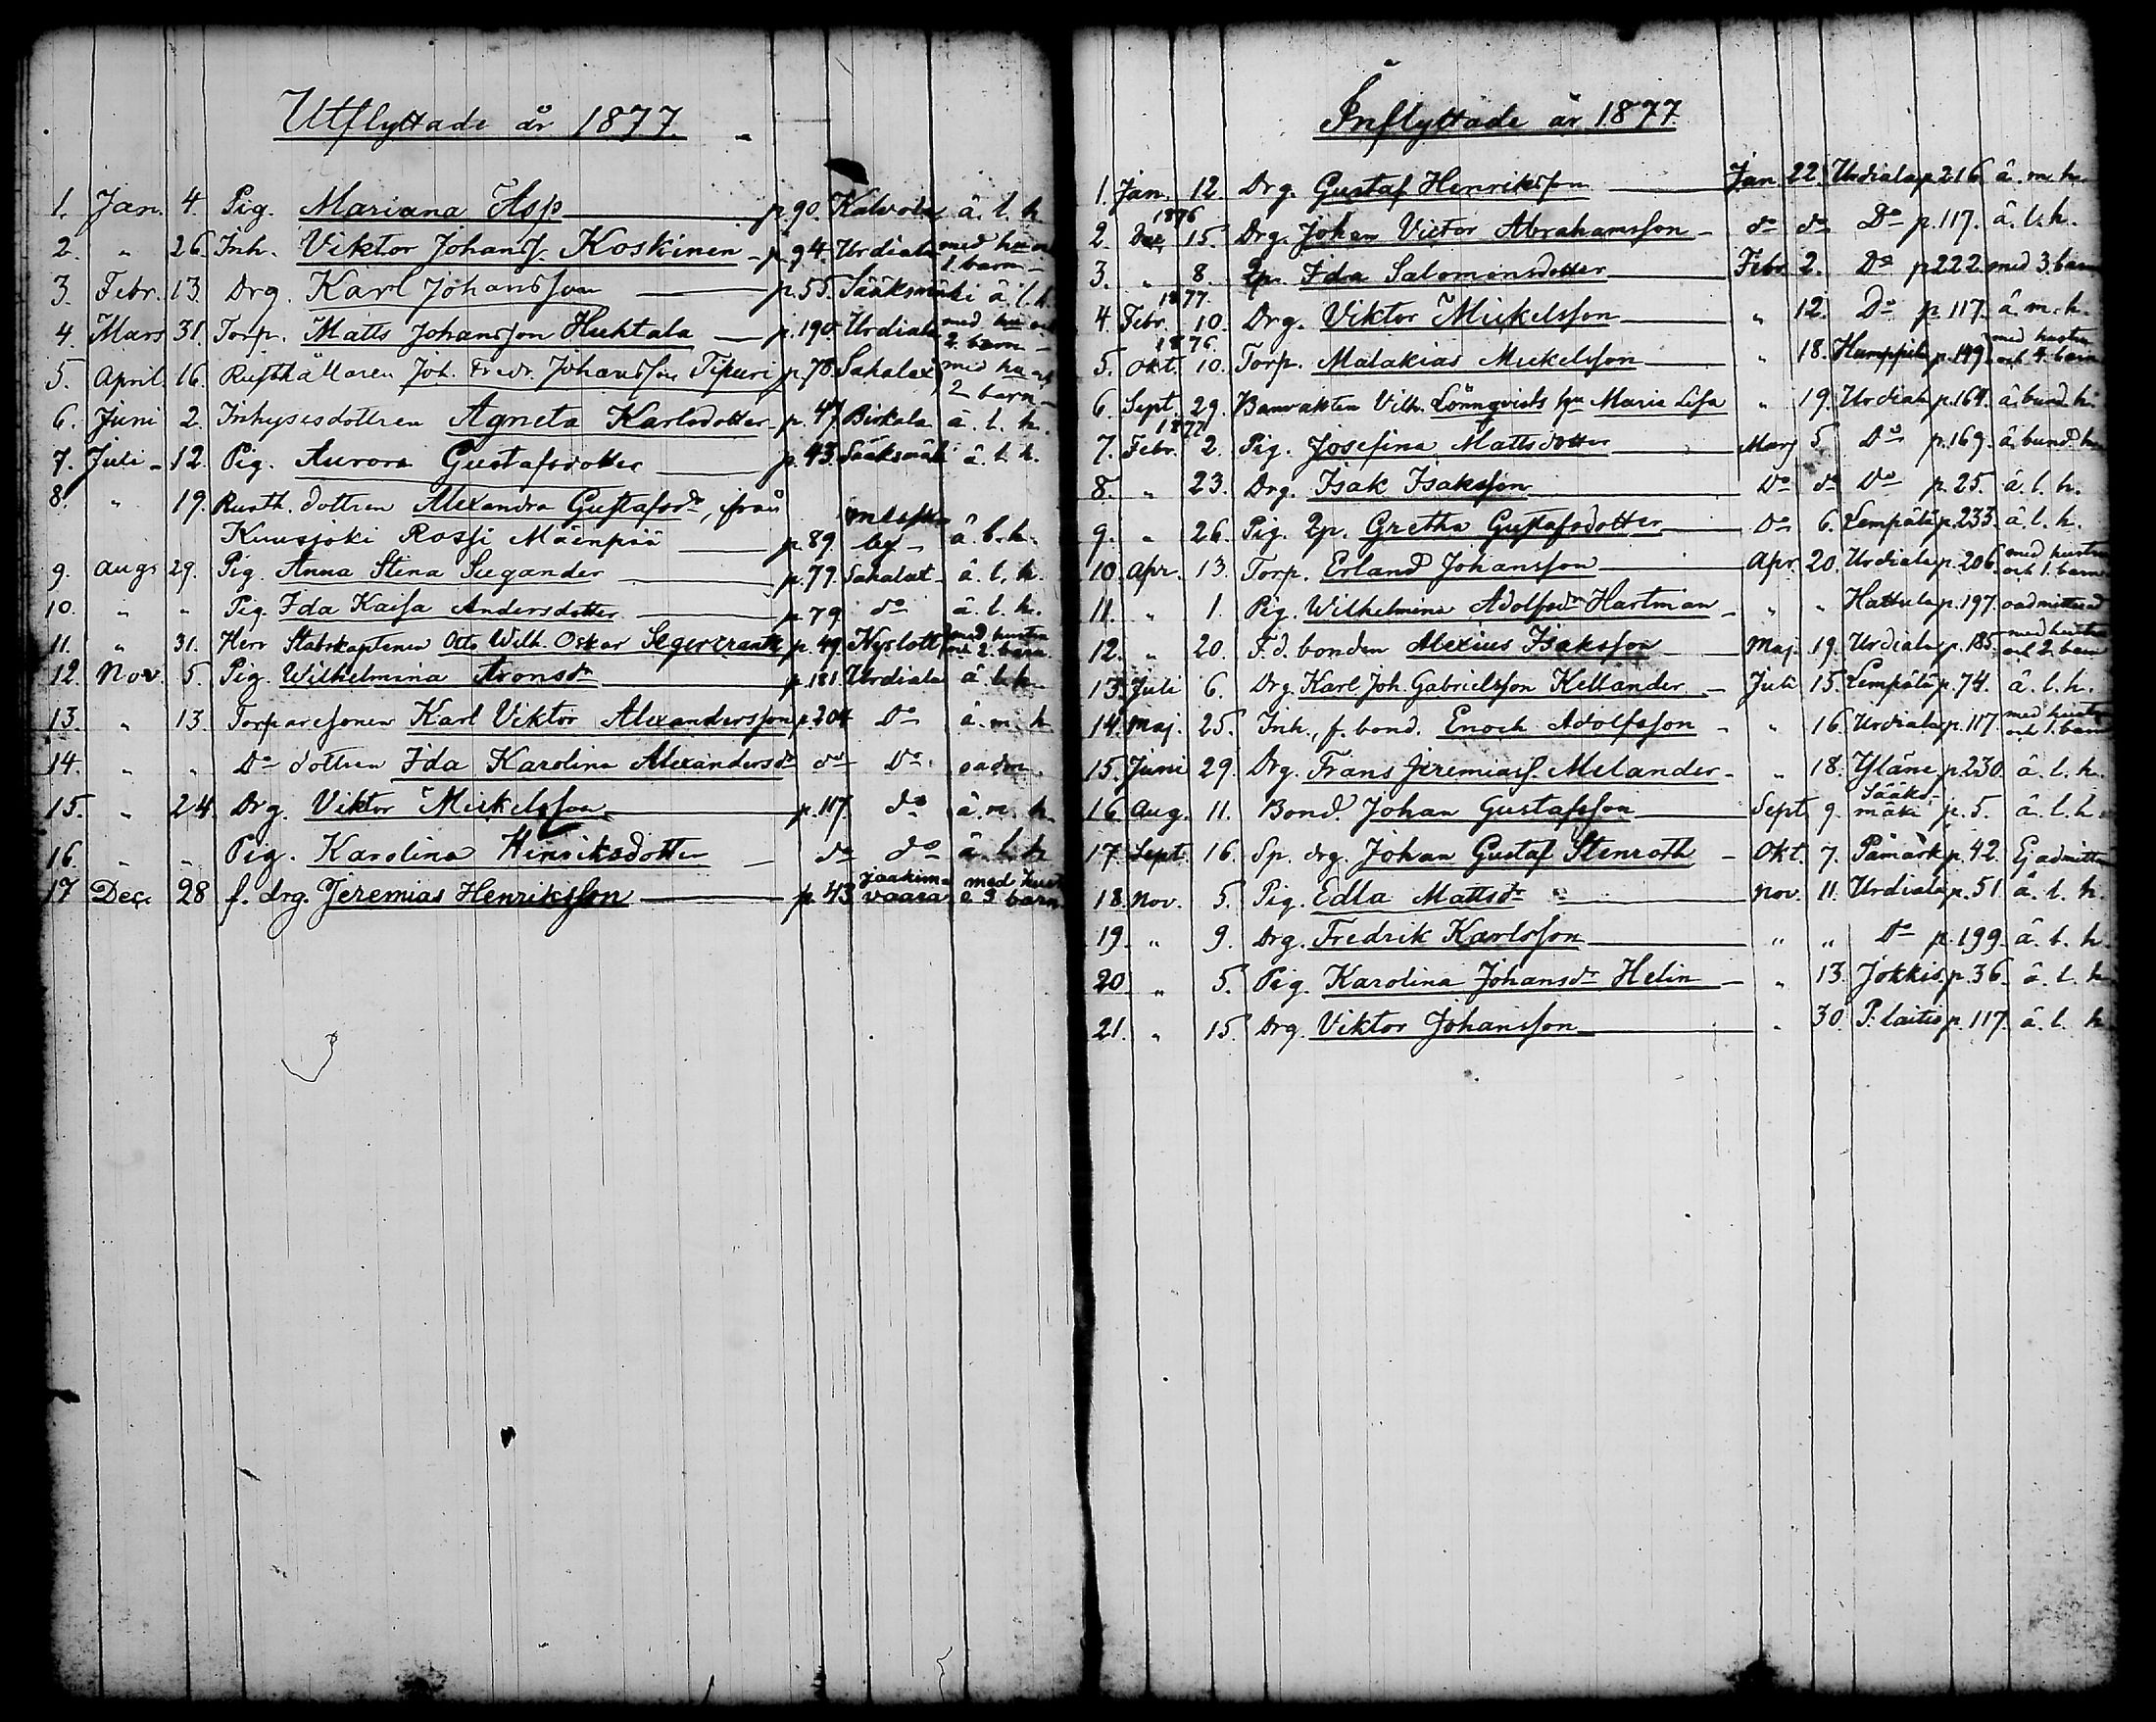 Utflyttade år 1877.
1. Jan. 4. Pig. Mariana Asp p. 90. Kalvola ä. l. h.
2. " 26. Inh. Viktor Johanss. Koskinen p. 94. Urdiala med hu o 1. barn
3. Febr. 13. Drg. Karl Johansson p. 55. Sääksmäki ä. l. h.
4. Mars 31. Torp. Matts Johansson Huhtala p. 190. Urdiala med hu och 2. barn
5. April 16. Rusthållaren Joh. Fredr. Johansson Pipuri p. 78. Sahalax med hu och 2 barn
6. Juni 2. Inhysesdottren Agneta Karlsdotter p. 47. Birkala ä. l. h.
7. Juli 12. Pig. Aurora Gustafsdotter p. 43. Sääksmäki ä. l. h.
8. " 19. Rusth. dottren Alexandra Gustafsdr, ifrån
Kuusjoki Rossi Mäenpää p. 89. ä. l. h.
9. Augs 29. Pig. Anna Stina Segander p. 77. Sahalax ä. l. h.
10. " " Pig. Ida Kaisa Andersdotter p. 79 do ä. l. h.
11. " 31. Herr Stabskaptenen Otto Wilh. Oskar Segercrantz p. 49. Nyslott med hustru och 2. barn
12. Nov. 5. Pig. Wilhelmina Aronsdr p. 181. Urdiala ä. l. h.
13. " 13. Torparesonen Karl Viktor Alexandersson p. 204 Do ä. m. h.
14. " " Do dottren Ida Karolina Alexandersdr do Do oadm.
15. " 24. Drg. Viktor Mickelsson p. 117. do ä. m. h.
16. " " Pig. Karolina Henriksdotter do do ä. l. h.
17 Dec. 28 f. drg. Jeremias Henriksson p. 43 Jaakimvaara med hust. o 3 barn
Inflyttade år 1877.
1. Jan. 12. Drg. Gustaf Henriksson Jan. 22. Urdiala p. 216. ä. m. h.
1876
2. Dec 15. Drg. Johan Victor Abrahamsson do do Do p. 117. ä. l. h.
3. " 8. Ida Salomonsdotter Febr. 2. Do p. 222. med 3. barn
1877.
4. Febr. 10. Drg. Viktor Mickelsson " 12. Do p. 117. ä. m. h.
1876
5. Okt. 10. Torp. Malakias Mickelsson " 18. Humppila p. 149. med hustru och 4. barn
6. Sept. 29. Banvakten Vilh. Lönnqvists hu Maria Lisa " 19. Urdiala p. 164. ä. bund. h.
1877
7. Febr. 2. Pig. Josefina Mattsdotter Mars 5. Do p. 169. ä. bund. h.
8. " 23. Drg. Isak Isaksson Do do Do p. 25. ä. l. h.
9. " 26. Pig. Gretha Gustafsdotter Do 6. Lempälä p. 233. ä. l. h.
10. Apr. 13. Torp. Erland Johansson Apr. 20. Urdiala p. 206. med hustru och 1. barn
11. " 1. Pig. Wilhelmina Adolfsdr Hartman " " Hattula p. 197. oadmitterad
12. " 20. F. d. bonden Alexius Isaksson Maj. 19. Urdiala p. 185. med hustru och 2. barn
13. Juli 6. Drg. Karl Joh. Gabrielsson Kellander Juli 15. Lempälä p. 74. ä. l. h.
14. Maj. 25. Inh., f. bond. Enoch Adolfsson " 16. Urdiala p. 117. med hustru och 1. barn
15. Juni 29. Drg. Frans Jeremiass. Melander " 18. Yläne p. 230. ä. l. h.
16. Aug. 11. Bond. Johan Gustafsson Sept. 9. Sääksmäki p. 5. ä. l. h.
17. Sept. 16. Sp. drg. Johan Gustaf Stenroth Okt. 7. Påmark p. 42. Ej admitt.
18. Nov. 5. Pig. Edla Mattsdr Nov. 11. Urdiala p. 51. ä. l. h.
19. " 9. Drg. Fredrik Karlsson " " Do p. 199. ä. l. h.
20. " 5. Pig. Karolina Johansdr Helin " 13. Jokkis p. 36. ä. l. h.
21. " 15. Drg. Viktor Johansson " 30. P. laitio p. 117. ä. l. h.